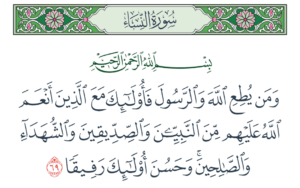 سُورَةُ النِّسَاءِ
بِسْمِ اللَّهِ الرَّحْمَٰنِ الرَّحِيمِ
وَمَن يُطِعِ اللَّهَ وَالرَّسُولَ فَأُولَٰئِكَ مَعَ الَّذِينَ أَنْعَمَ
اللَّهُ عَلَيْهِم مِّنَ النَّبِيِّينَ وَالصِّدِّيقِينَ وَالشُّهَدَاءِ
وَالصَّالِحِينَ ۚ وَحَسُنَ أُولَٰئِكَ رَفِيقًا ٦٩